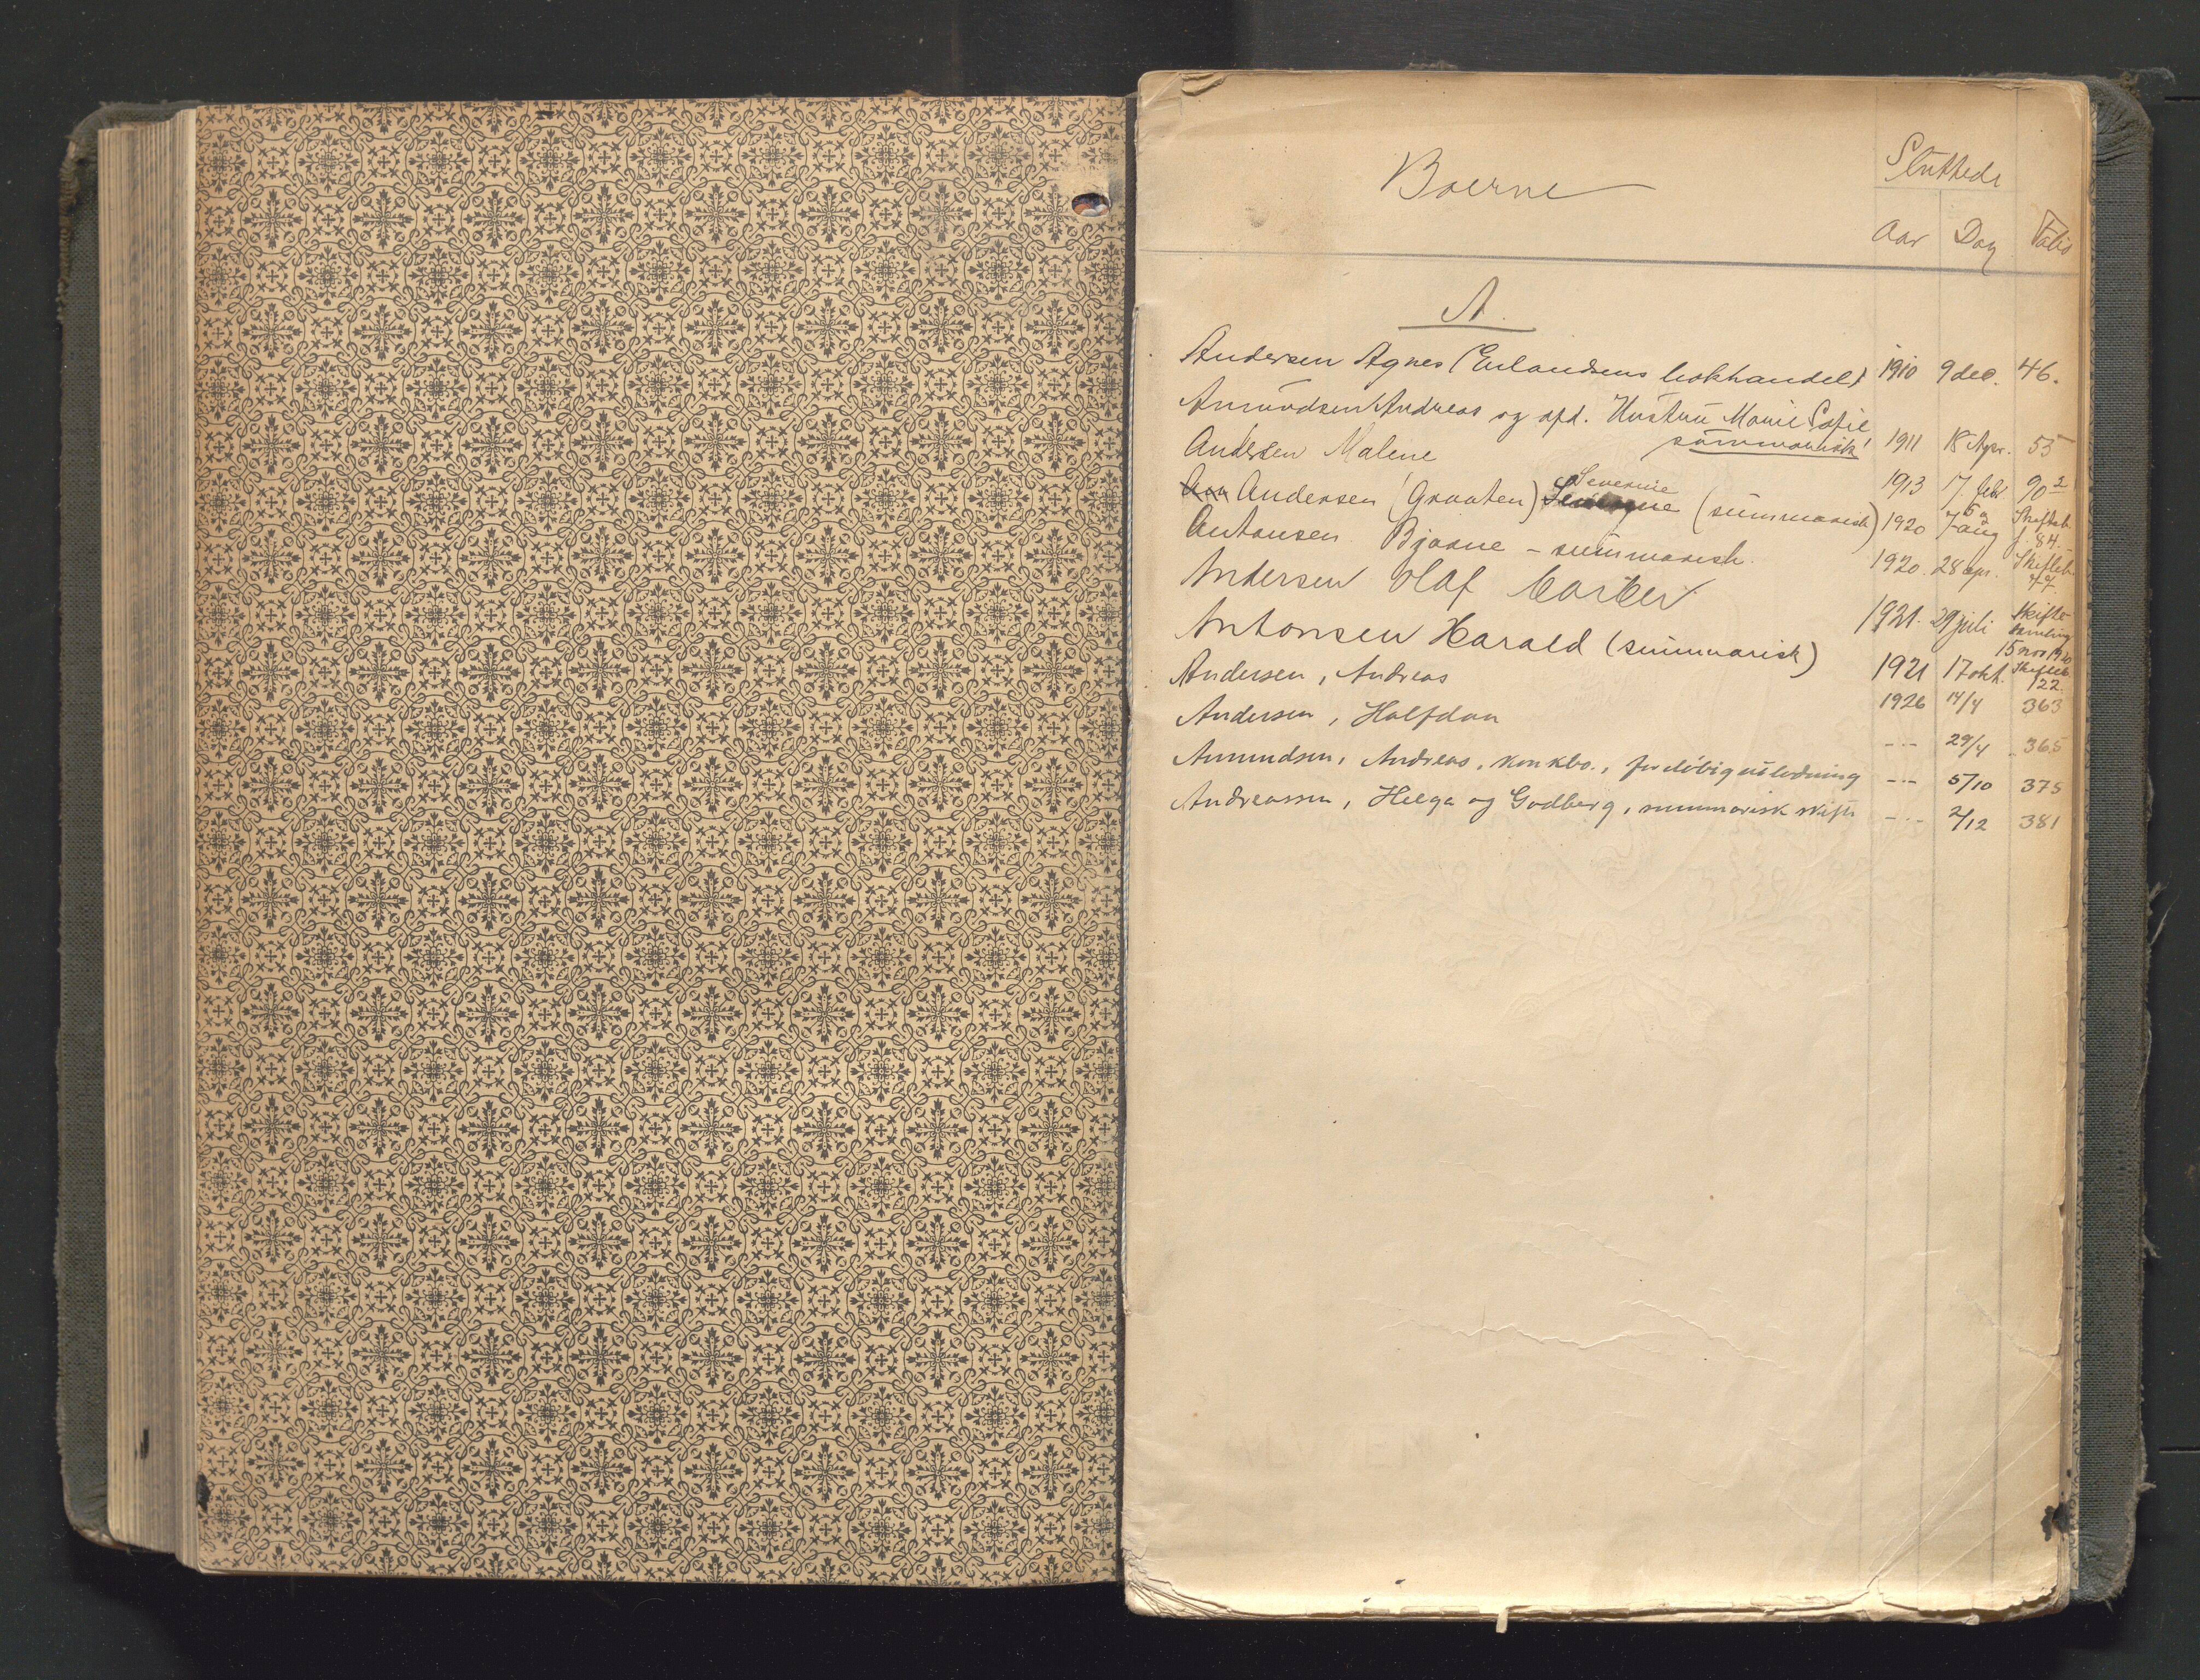 Boerne
Sluttede
Aar Dag Folio
A.
Andersen Agnes (Erlandsens bokhandel) 1910 9 dec. 46.
Amundsen Andreas og afd. Hustru Marie Sofie
summarisk 1911 18 Apr. 55
Andersen Malene 1913 17. febr 90²
Andersen (Graaten) Severine (summarisk) 1920 7 aug Skifteb. f. 84.
Antonsen Bjarne - summarisk. 1920. 28 apr. Skifteb. 77
Andersen Olaf 1921. 29 juli Skifte-
samling
15 nov 1920
Antonsen Harald (summarisk) 1921 17 okt. Skifteb. 122.
Andersen, Andreas 1926 14/4 363
Andersen, Halfdan -"- 29/4 365
Amundsen, Andreas, konkbo., foreløbig utlodning -"- 5/10 375
Andreassen, Helga og Godberg, summarisk skifte -"- 2/12 381